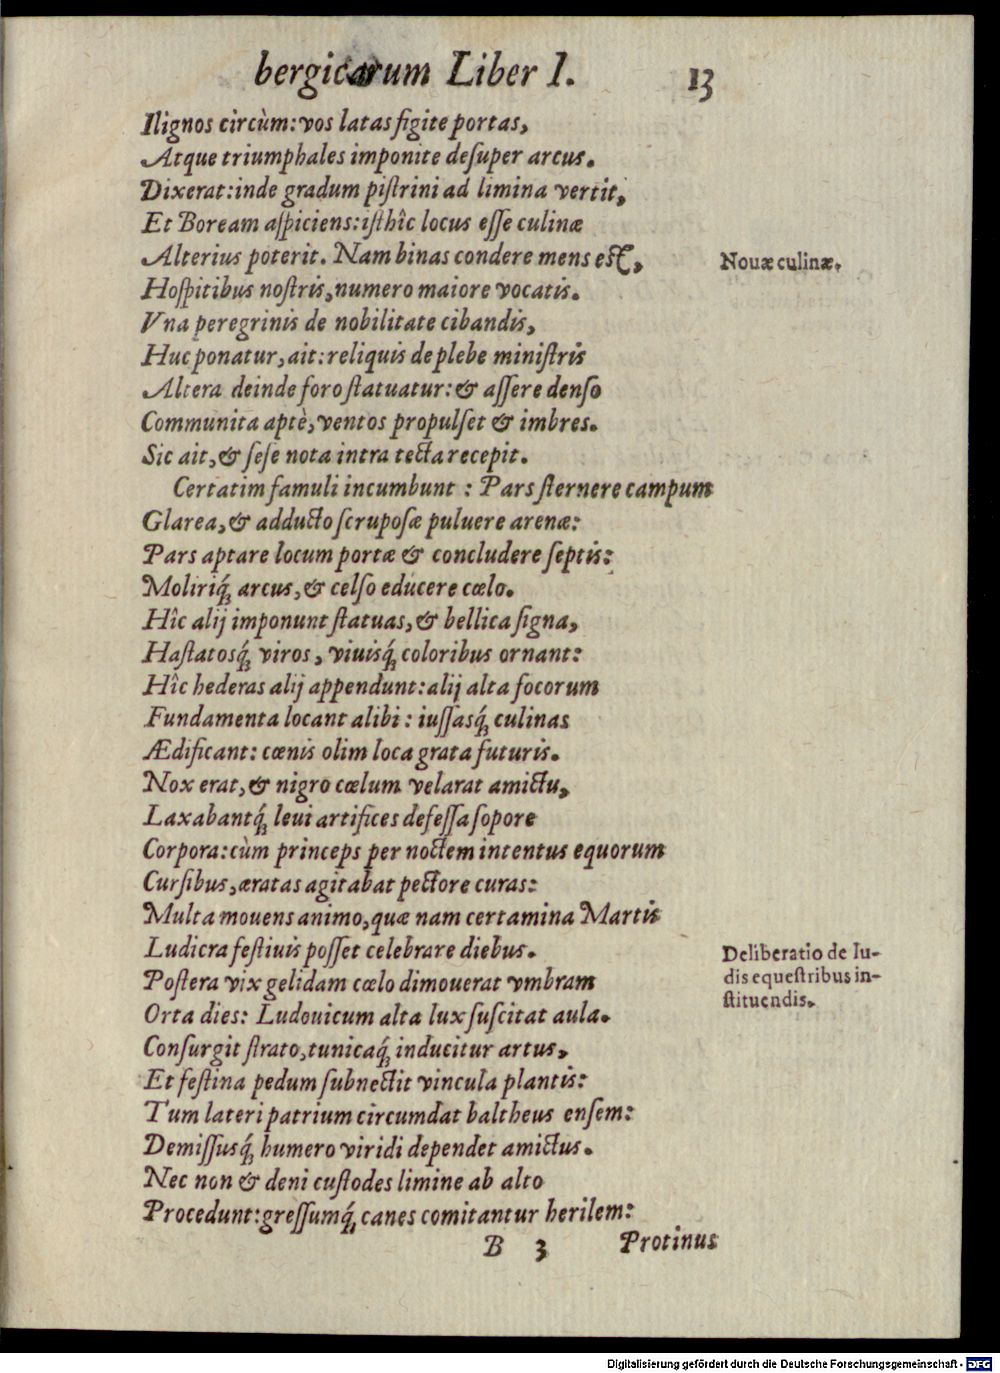 bergicarum Liber I. 13
Ilignos circùm: vos latas figite portas,
Atque triumphales imponite deſuper arcus.
Dixerat: inde gradum piſtrini ad limina vertit,
Et Boream aſpiciens: iſthîc locus eſſe culinæ
Alterius poterit. Nam binas condere mens eſt,
Nouæ culinæ.
Hoſpitibus noſtris, numero maiore vocatis.
Vna peregrinis de nobilitate cibandis,
Huc ponatur, ait: reliquis de plebe miniſtris
Altera deinde foro ſtatuatur: & aſſere denſo
Communita aptè, ventos propulſet & imbres.
Sic ait, & ſeſe nota intra tecta recepit.
Certatim famuli incumbunt: Pars ſternere campum
Glarea, & adducto ſcrupoſæ puluere arenæ:
Pars aptare locum portæ & concludere ſeptis:
Moliriq́; arcus, & celſo educere cœlo.
Hîc alij imponunt ſtatuas, & bellica ſigna,
Haſtatosq́; viros, viuisq́; coloribus ornant:
Hîc hederas alij appendunt: alij alta focorum
Fundamenta locant alibi: iuſſasq́; culinas
Ædificant: cœnis olim loca grata futuris.
Nox erat, & nigro cœlum velarat amictu,
Laxabantq́; leui artifices defeſſa ſopore
Corpora: cùm princeps per noctem intentus equorum
Curſibus, æratas agitabat pectore curas:
Multa mouens animo, quæ nam certamina Martis
Ludicra feſtiuis poſſet celebrare diebus.
Deliberatio de lu-
dis equeſtribus in-
ſtituendis.
Poſtera vix gelidam cœlo dimouerat vmbram
Orta dies: Ludouicum alta lux ſuſcitat aula.
Conſurgit ſtrato, tunicaq́; inducitur artus,
Et feſtina pedum ſubnectit vincula plantis:
Tum lateri patrium circumdat baltheus enſem:
Demiſſusq́; humero viridi dependet amictus.
Nec non & deni cuſtodes limine ab alto
Procedunt: greſſumq́; canes comitantur herilem:
B 3 Protinus
Digitalisierung gefördert durch die Deutsche Forschungsgemeinschaft - DFG